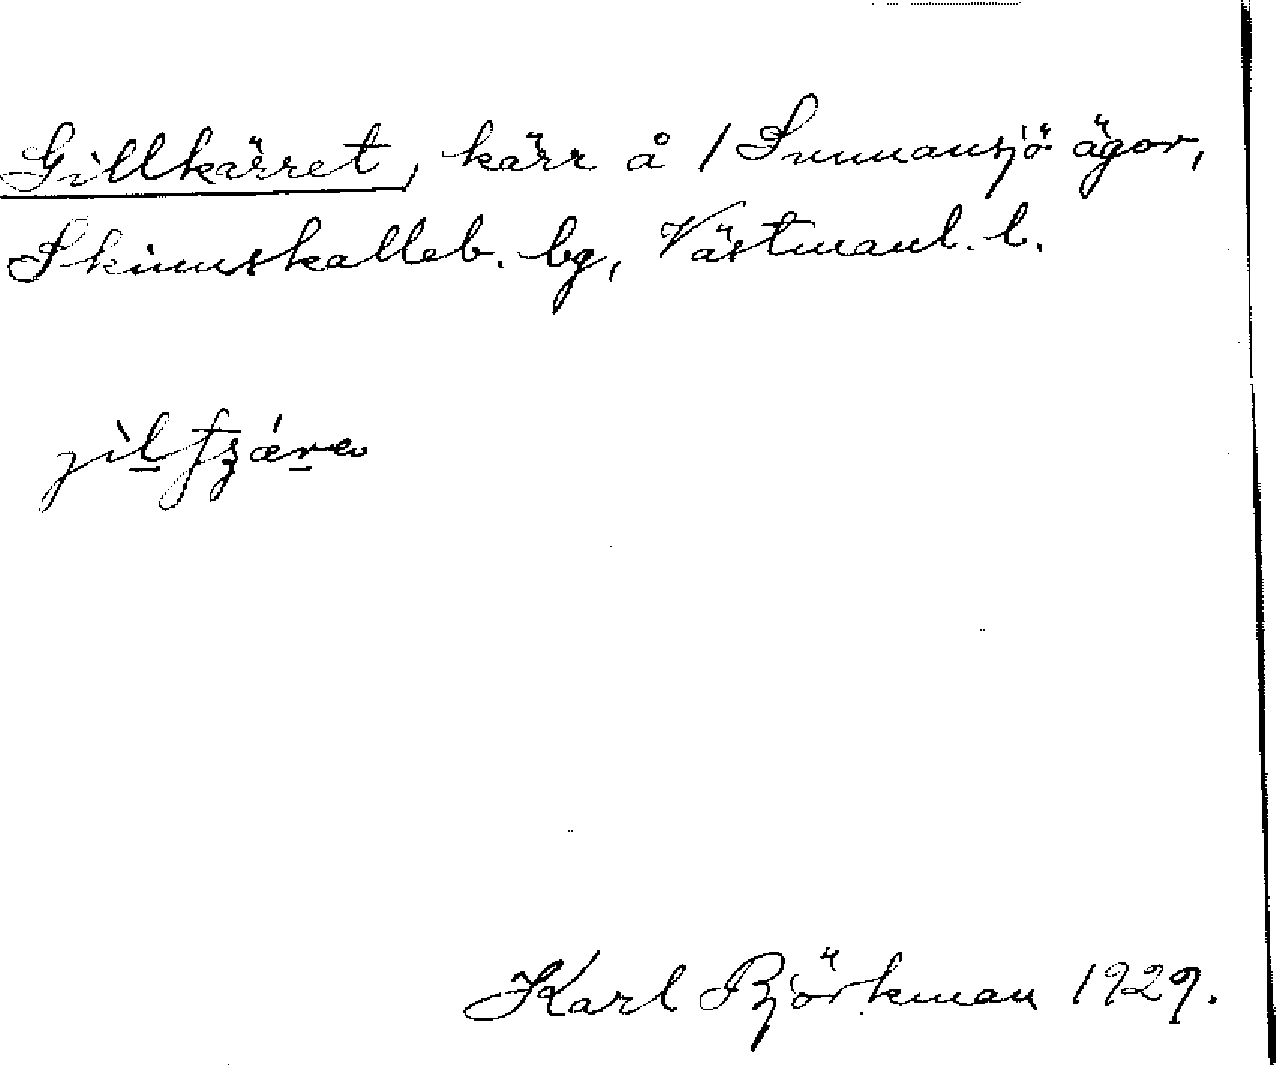 Gillkärret, kärr å / Sunnansjö ägor,
Skinnskatteb. bg, Västmanl. l.
Karl Björkman 1929.